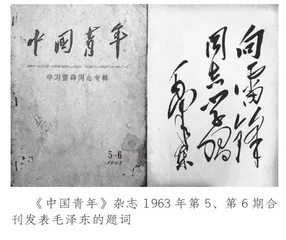 中国青年
学习雷锋同志专辑
5-6
1963
向雷锋
同志学习
毛泽东
《中国青年》杂志 1963 年第 5、第 6 期合
刊发表毛泽东的题词